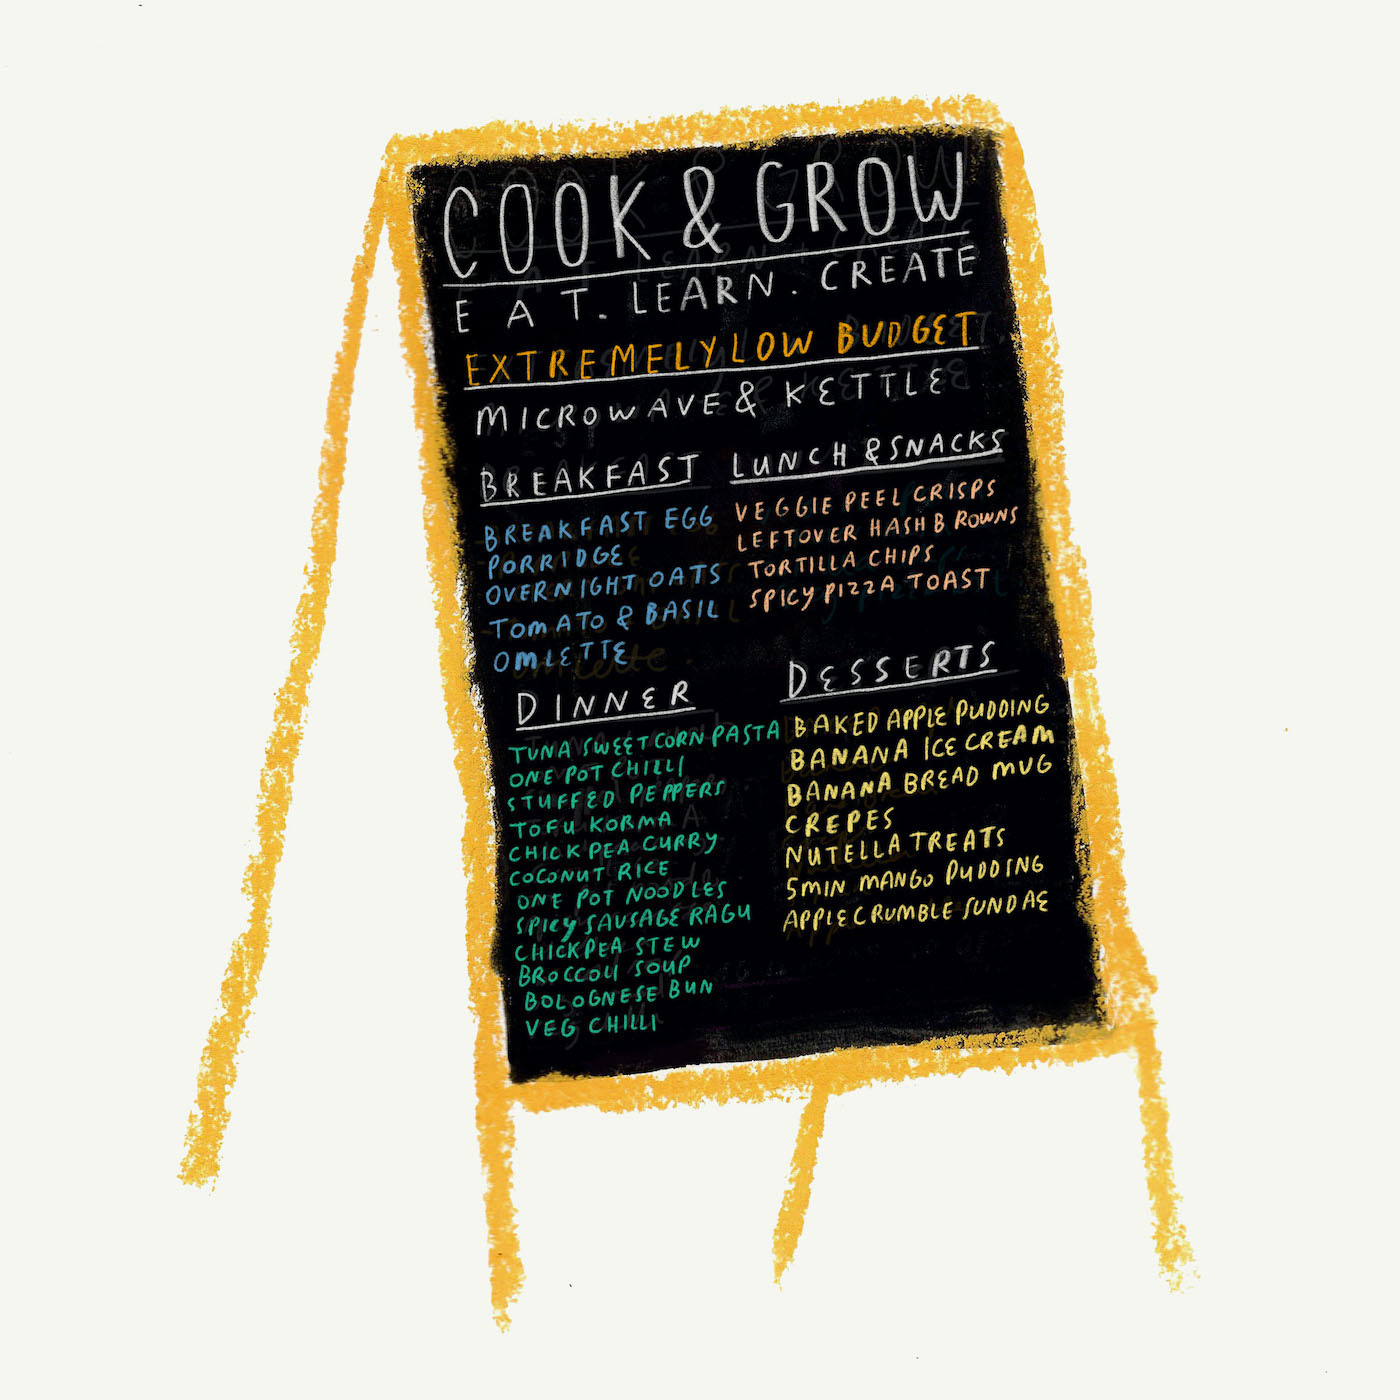 COOK & GROW
EAT. LEARN. CREATE
EXTREMELY LOW BUDGET
MICROWAVE & KETTLE
BREAKFAST
BREAKFAST EGG
PORRIDGE
OVERNIGHT OATS
TOMATO & BASIL
OMLETTE
LUNCH & SNACKS
VEGGIE PEEL CRISPS
LEFTOVER HASH BROWNS
TORTILLA CHIPS
SPICY PIZZA TOAST
DINNER
TUNA SWEETCORN PASTA
ONE POT CHILLI
STUFFED PEPPERS
TOFU KORMA
CHICKPEA CURRY
COCONUT RICE
ONE POT NOODLES
SPICY SAUSAGE RAGU
CHICKPEA STEW
BROCCOLI SOUP
BOLOGNESE BUN
VEG CHILLI
DESSERTS
BAKED APPLE PUDDING
BANANA ICE CREAM
BANANA BREAD MUG
CREPES
NUTELLA TREATS
5MIN MANGO PUDDING
APPLE CRUMBLE SUNDAE